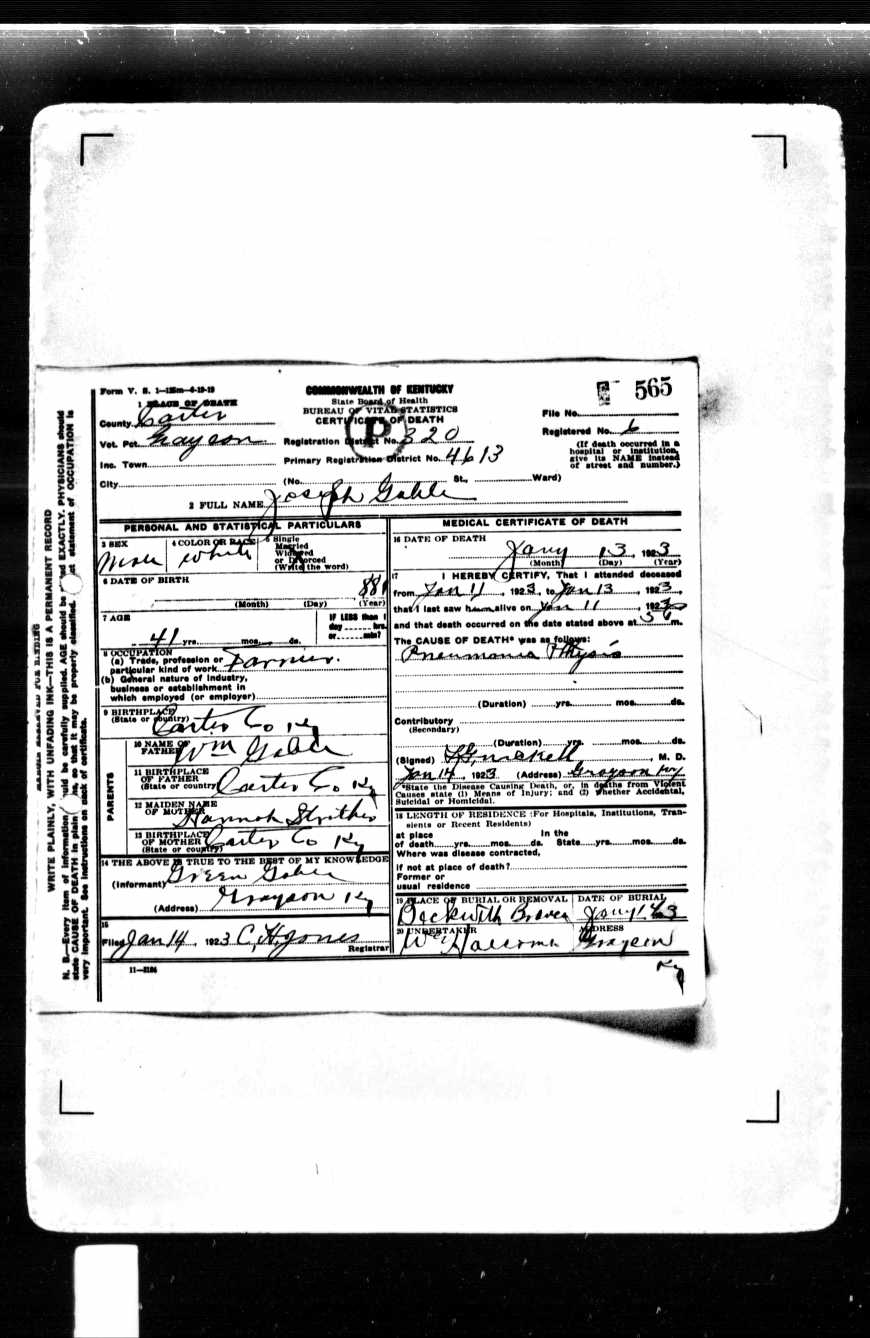 Form V. S. 1—125m—4-19-19
COMMONWEALTH OF KENTUCKY
State Board of Health
BUREAU OF VITAL STATISTICS
CERTIFICATE OF DEATH
P
565
File No.
Registered No. 6
(If death occurred in a
hospital or institution,
give its NAME instead
of street and number.)
1 PLACE OF DEATH
County Carter
Vot. Pct. Grayson
Registration District No. 320
Inc. Town
Primary Registration District No. 4613
City
(No. St., Ward)
2 FULL NAME Joseph Gable
PERSONAL AND STATISTICAL PARTICULARS
3 SEX
Male
4 COLOR OR RACE
White
5 Single
Married
Widowed
or Divorced
(Write the word)
6 DATE OF BIRTH
881
(Month) (Day) (Year)
7 AGE
41 yrs. mos. ds.
IF LESS than 1
day hrs.
or min?
8 OCCUPATION
(a) Trade, profession or
particular kind of work Farmer.
(b) General nature of industry,
business or establishment in
which employed (or employer)
9 BIRTHPLACE
(State or country) Carter Co Ky
PARENTS
10 NAME OF
FATHER Wm Gable
11 BIRTHPLACE
OF FATHER
(State or country) Carter Co Ky
12 MAIDEN NAME
OF MOTHER Hannah Strother
13 BIRTHPLACE
OF MOTHER
(State or country) Carter Co Ky
14 THE ABOVE IS TRUE TO THE BEST OF MY KNOWLEDGE
(Informant) Green Gable
(Address) Grayson Ky
15
Filed Jan 14, 1923 C. H. Jones
Registrar
11—3184
MEDICAL CERTIFICATE OF DEATH
16 DATE OF DEATH
Jany 13, 1923
(Month) (Day) (Year)
17 I HEREBY CERTIFY, That I attended deceased
from Jan 11, 1923, to Jan 13, 1923,
that I last saw him alive on Jan 11, 192
and that death occurred on the date stated above at m.
The CAUSE OF DEATH* was as follows:
Pneumonia
(Duration) yrs. mos. ds.
Contributory
(Secondary)
(Duration) yrs. mos. ds.
(Signed) M. D.
Jan 14, 1923 (Address) Grayson Ky.
*State the Disease Causing Death, or, in deaths from Violent
Causes state (1) Means of Injury; and (2) whether Accidental,
Suicidal or Homicidal.
18 LENGTH OF RESIDENCE (For Hospitals, Institutions, Tran-
sients or Recent Residents)
at place In the
of death yrs. mos. ds. State yrs. mos. ds.
Where was disease contracted,
if not at place of death?
Former or
usual residence
19 PLACE OF BURIAL OR REMOVAL
Beckwith
DATE OF BURIAL
20 UNDERTAKER
ADDRESS
Grayson
Ky
MARGIN RESERVED FOR BINDING
WRITE PLAINLY, WITH UNFADING INK—THIS IS A PERMANENT RECORD
N. B.—Every item of information should be carefully supplied. AGE should be stated EXACTLY. PHYSICIANS should
state CAUSE OF DEATH in plain so that it may be properly classified. statement of OCCUPATION is
very important. See instructions on back of certificate.